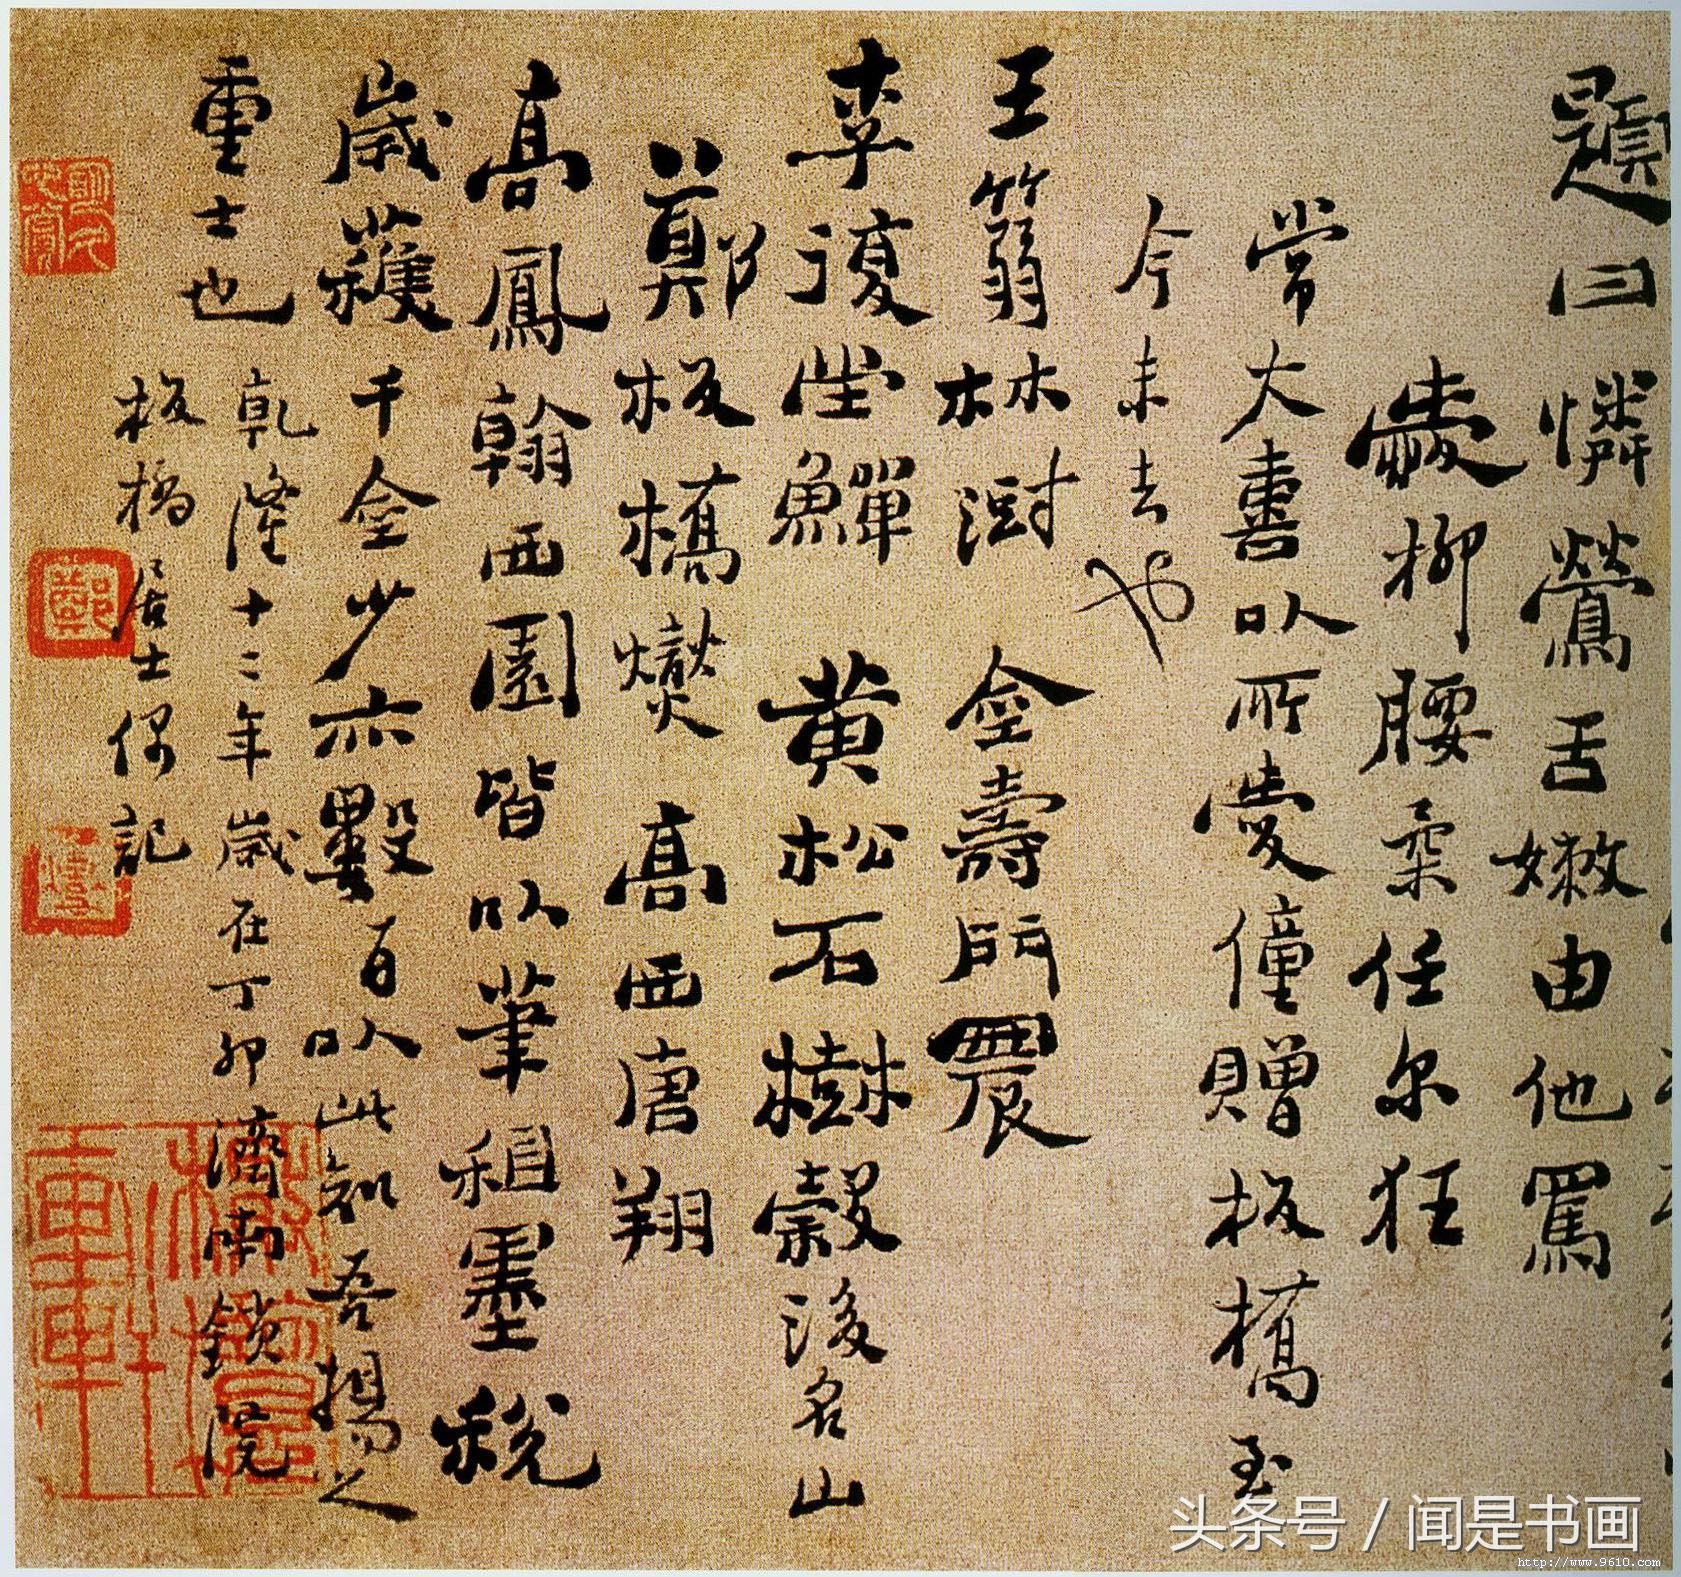 題曰憐鶯舌嫩由他罵
愛柳腰柔任尔狂
常大喜以所愛僮贈板橋至
今未去也
王篛林澍 金壽門農
李復堂鱓 黃松石樹穀後名山
鄭板橋燮 高西唐翔
高鳳翰西園皆以筆租墨稅
歲獲千金少亦數百以此知吾揚之
重士也
乾隆十二年歲在丁卯濟南鎖院
板橋居士偶記
头条号 / 闻是书画
http://www.9610.com